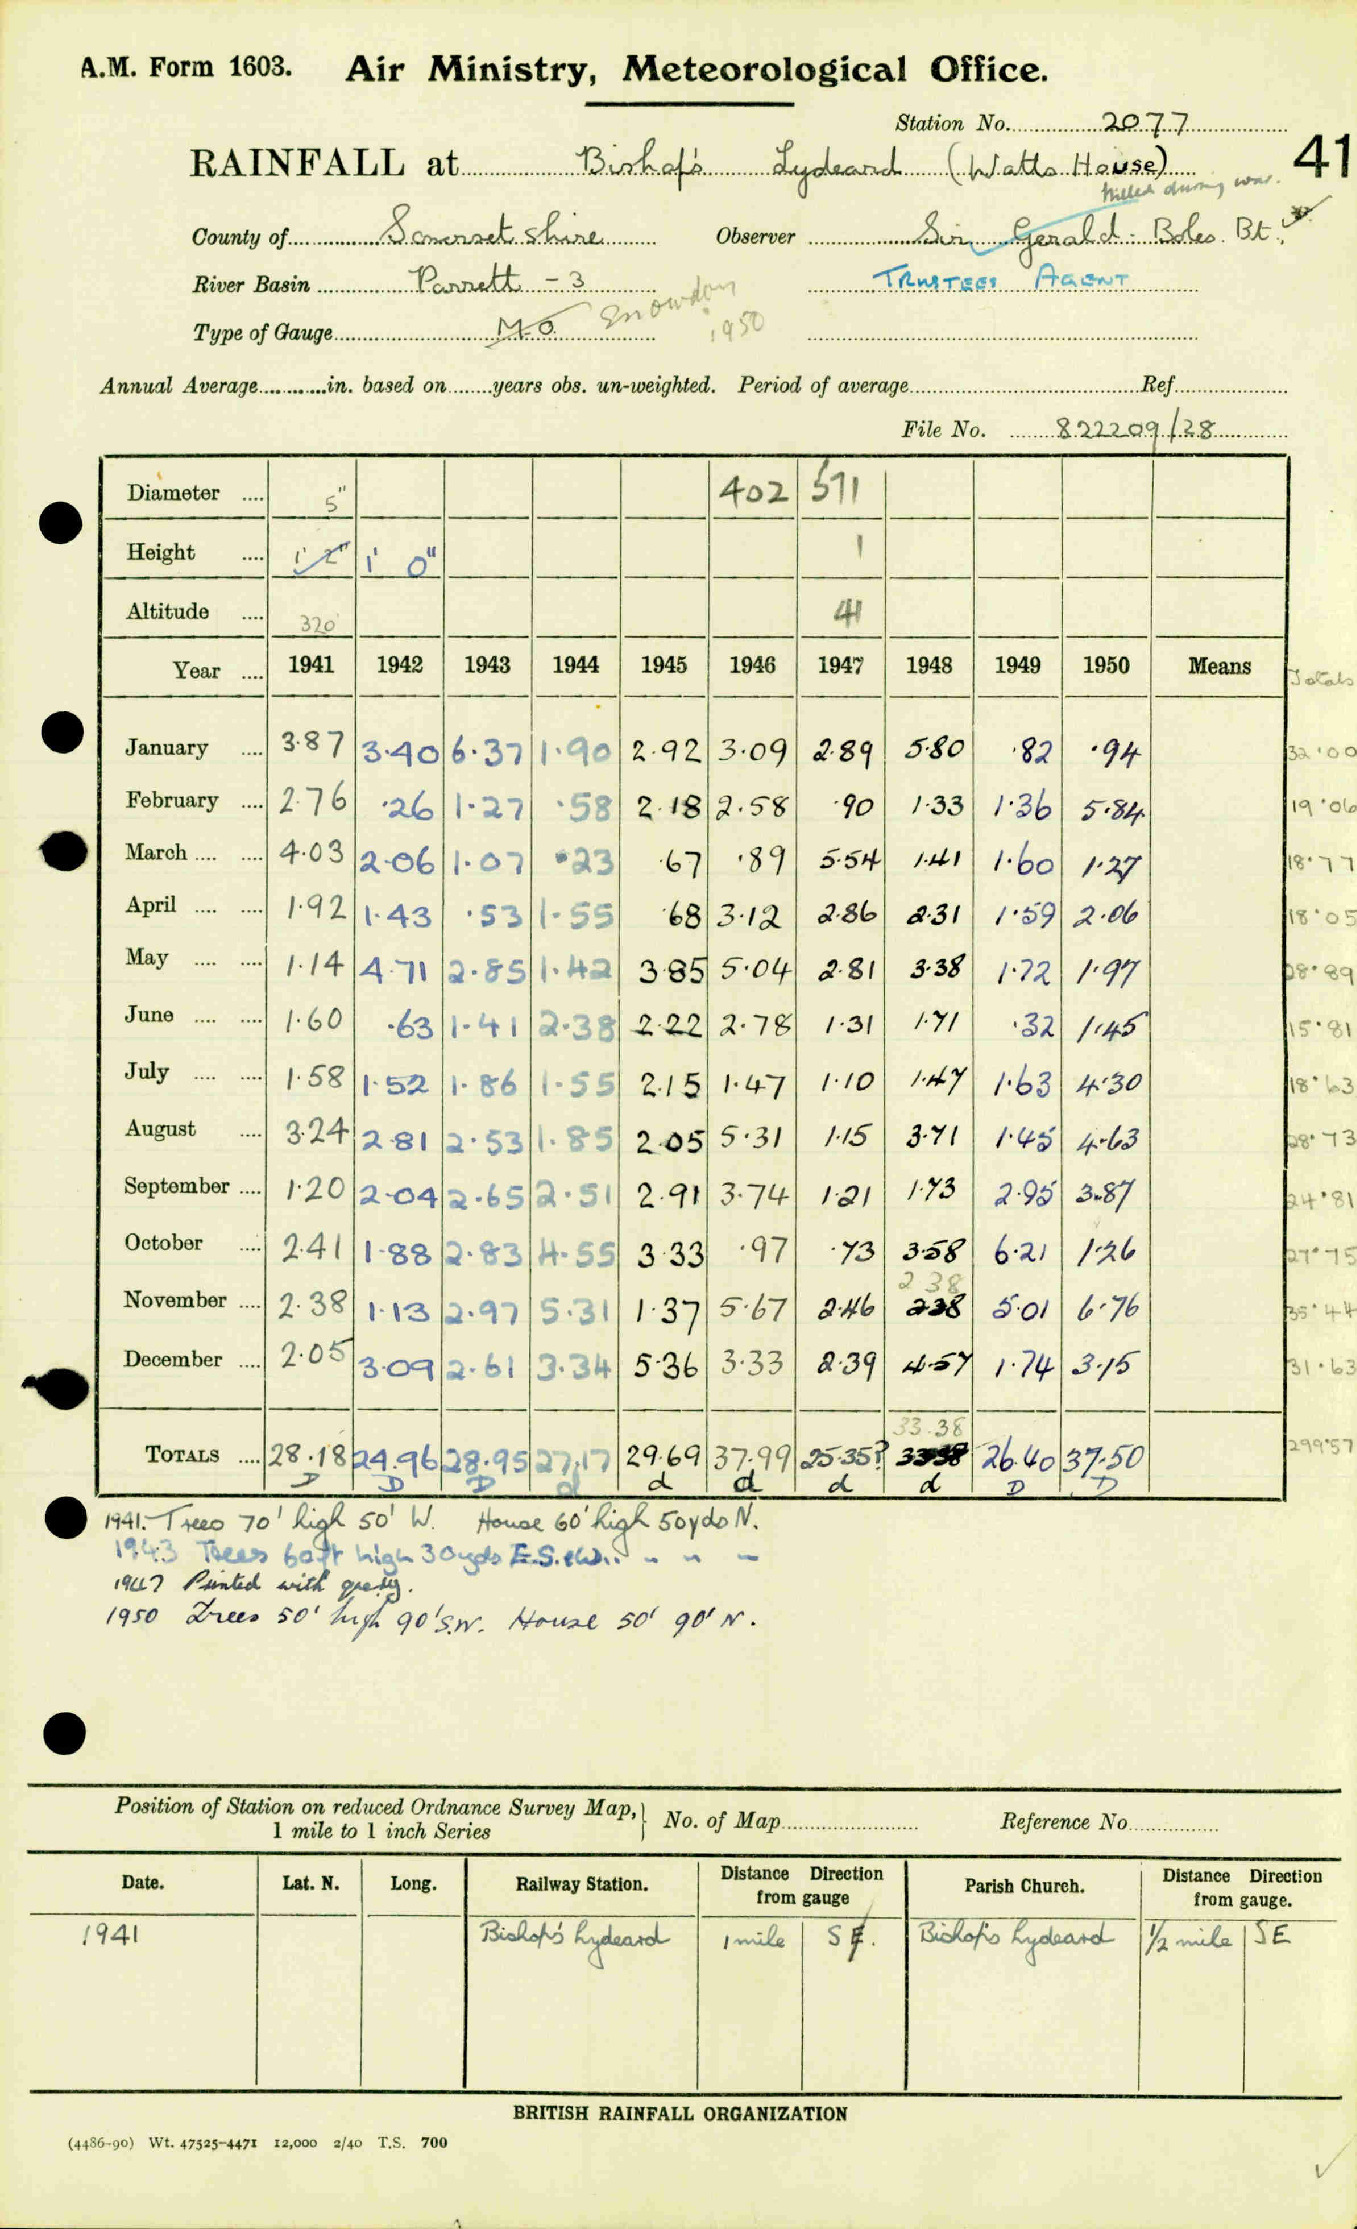 A.M. Form 1603. Air Ministry, Meteorological Office.
Station No. 2077
RAINFALL at Bishop's Lydeard (Watts House) 41
killed during war.
County of Somerset shire Observer Sir Gerald Boles Bt.
River Basin Parrett - 3 TRUSTEES AGENT
Type of Gauge M.O. Snowdon 1950
Annual Average in. based on years obs. un-weighted. Period of average Ref
File No. 822209/28
Diameter 5" 402 571
Height 1' 2" 1' 0" 1
Altitude 320 41
Year 1941 1942 1943 1944 1945 1946 1947 1948 1949 1950 Means Totals
January 3.87 3.40 6.37 1.90 2.92 3.09 2.89 5.80 .82 .94 32.00
February 2.76 .26 1.27 .58 2.18 2.58 .90 1.33 1.36 5.84 19.06
March 4.03 2.06 1.07 .23 .67 .89 5.54 1.41 1.60 1.27 18.77
April 1.92 1.43 .53 1.55 .68 3.12 2.86 2.31 1.59 2.06 18.05
May 1.14 4.71 2.85 1.42 3.85 5.04 2.81 3.38 1.72 1.97 28.89
June 1.60 .63 1.41 2.38 2.22 2.78 1.31 1.71 .32 1.45 15.81
July 1.58 1.52 1.86 1.55 2.15 1.47 1.10 1.47 1.63 4.30 18.63
August 3.24 2.81 2.53 1.85 2.05 5.31 1.15 3.71 1.45 4.63 28.73
September 1.20 2.04 2.65 2.51 2.91 3.74 1.21 1.73 2.95 3.87 24.81
October 2.41 1.88 2.83 4.55 3.33 .97 .73 3.58 6.21 1.26 27.75
2.38
November 2.38 1.13 2.97 5.31 1.37 5.67 2.46 2.38 5.01 6.76 35.44
December 2.05 3.09 2.61 3.34 5.36 3.33 2.39 4.57 1.74 3.15 31.63
33.38
TOTALS 28.18 24.96 28.95 27.17 29.69 37.99 25.35? 33.38 26.40 37.50 299.57
D D D d d d d d D D
1941. Trees 70' high 50' W. House 60' high 50yds N.
1943 Trees 60ft high 30yds E.S. & W. " " "
1947 Printed with
1950 Trees 50' high 90' S.W. House 50' 90' N.
Position of Station on reduced Ordnance Survey Map, No. of Map Reference No.
1 mile to 1 inch Series
Date. Lat. N. Long. Railway Station. Distance Direction from gauge Parish Church. Distance Direction from gauge.
1941 Bishop's Lydeard 1 mile S E. Bishop's Lydeard 1/2 mile SE
BRITISH RAINFALL ORGANIZATION
(4486-90) Wt. 47525-4471 12,000 2/40 T.S. 700